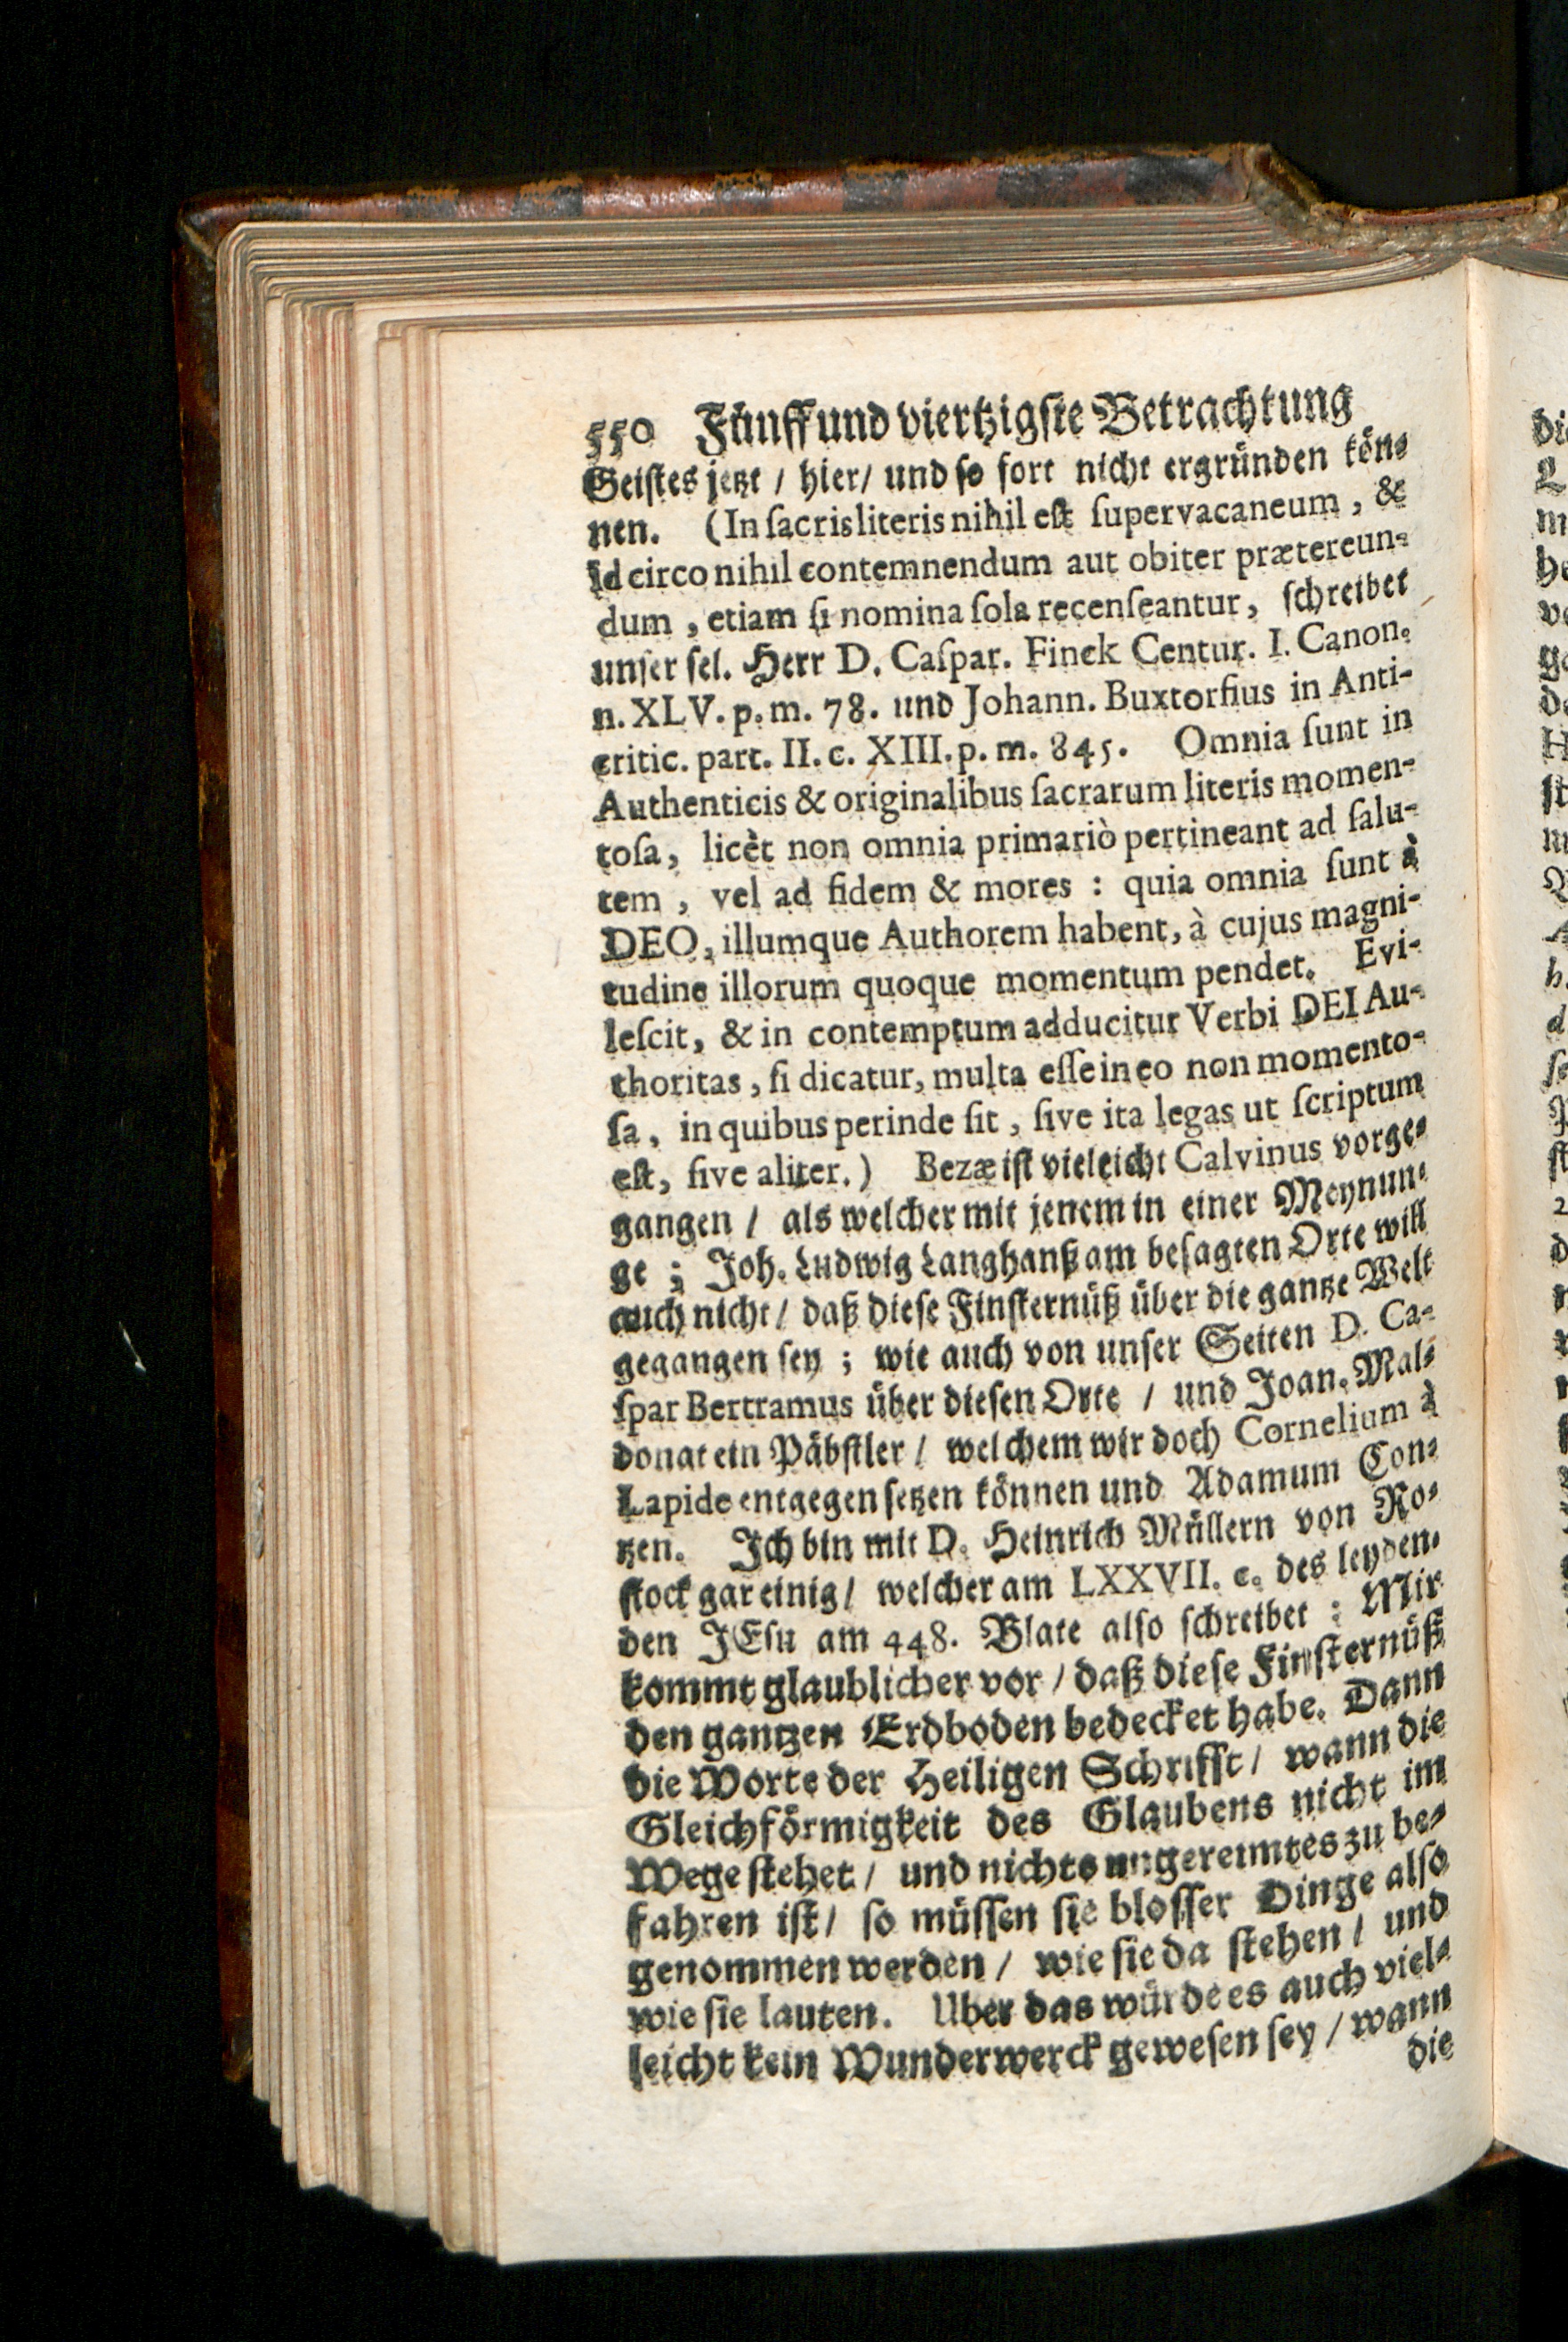 550 Fünff und viertzigste Betrachtung
Geistes jetzt / hier / und so fort nicht ergründen kön-
nen. (In ſacris literis nihil eſt ſupervacaneum, &
idcirco nihil contemnendum aut obiter prætereun-
dum, etiam ſi nomina ſola recenſeantur, ſchreibet
unſer ſel. Herr D. Caſpar. Finck Centur. I. Canon.
n. XLV. p. m. 78. und Johann. Buxtorfius in Anti-
critic. part. II. c. XIII. p. m. 845. Omnia ſunt in
Authenticis & originalibus ſacrarum literis momen-
toſa, licèt non omnia primariò pertineant ad ſalu-
tem, vel ad fidem & mores: quia omnia ſunt à
DEO, illumque Authorem habent, à cujus magni-
tudine illorum quoque momentum pendet. Evi-
leſcit, & in contemptum adducitur Verbi DEI Au-
thoritas, ſi dicatur, multa eſſe in eo non momento-
ſa, in quibus perinde ſit, ſive ita legas ut ſcriptum
eſt, ſive aliter.) Bezæ iſt vieleicht Calvinus vorge-
gangen / als welcher mit jenem in einer Meynun-
ge; Joh. Ludwig Langhanß am beſagten Orte will
auch nicht / daß dieſe Finſternüß über die gantze Welt
gegangen ſey; wie auch von unſer Seiten D. Ca-
ſpar Bertramus über dieſen Orte / und Joan. Mal-
donat ein Päbſtler / welchem wir doch Cornelium à
Lapide entgegen ſetzen können und Adamum Con-
tzen. Ich bin mit D. Heinrich Müllern von Ro-
ſtock gar einig / welcher am LXXVII. c. des leyden-
den JEſu am 448. Blate alſo ſchreibet: Mir
kommt glaublicher vor / daß dieſe Finſternüß
den gantzen Erdboden bedecket habe. Dann
die Worte der Heiligen Schrifft / wann die
Gleichförmigkeit des Glaubens nicht im
Wege ſtehet / und nichts ungereimtes zu be-
fahren iſt / ſo müſſen ſie bloſſer Dinge alſo
genommen werden / wie ſie da ſtehen / und
wie ſie lauten. Uber das würde es auch viel-
leicht kein Wunderwerck geweſen ſey / wann
die